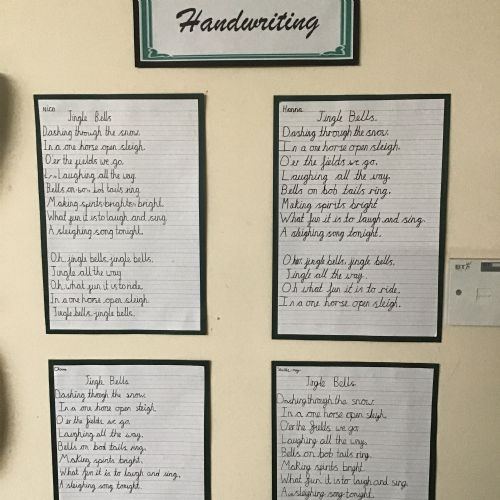 Handwriting
Nico
Jingle Bells
Dashing through the snow.
In a one horse open sleigh.
O'er the fields we go.
Laughing all the way.
Bells on bob tails ring
Making spirits bright
What fun it is to laugh and sing.
A sleighing song tonight.
Oh, jingle bells, jingle bells.
Jingle all the way
Oh, what fun it is to ride.
In a one horse open sleigh.
Jingle bells, jingle bells.
Hanna
Jingle Bells.
Dashing through the snow.
In a one horse open sleigh.
O'er the fields we go,
Laughing all the way.
Bells on bob tails ring,
Making spirits bright
What fun it is to laugh and sing.
A sleighing song tonight.
Oh, jingle bells, jingle bells.
Jingle all the way.
Oh what fun it is to ride.
In a one horse open sleigh.
Jingle Bells
Dashing through the snow.
In a one horse open sleigh.
O'er the fields we go.
Laughing all the way.
Bells on bod tails ring,
Making spirits bright,
What fun it is to laugh and sing,
A sleighing song tonight.
Jngle Bells
Dashing through the snow.
In a one horse open sleigh.
O'er the fields we go
Laughing all the way,
Bells on bob tails ring.
Making spirits bright.
What fun it is to laugh and sing.
A sleighing song tonight.